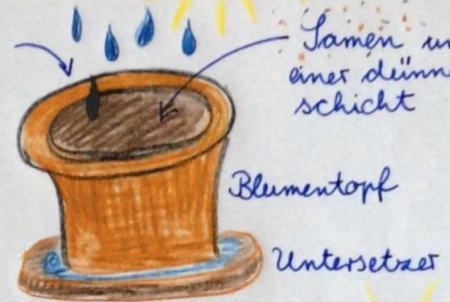 Samen
einer
schicht
Blumentopf
Untersetzer